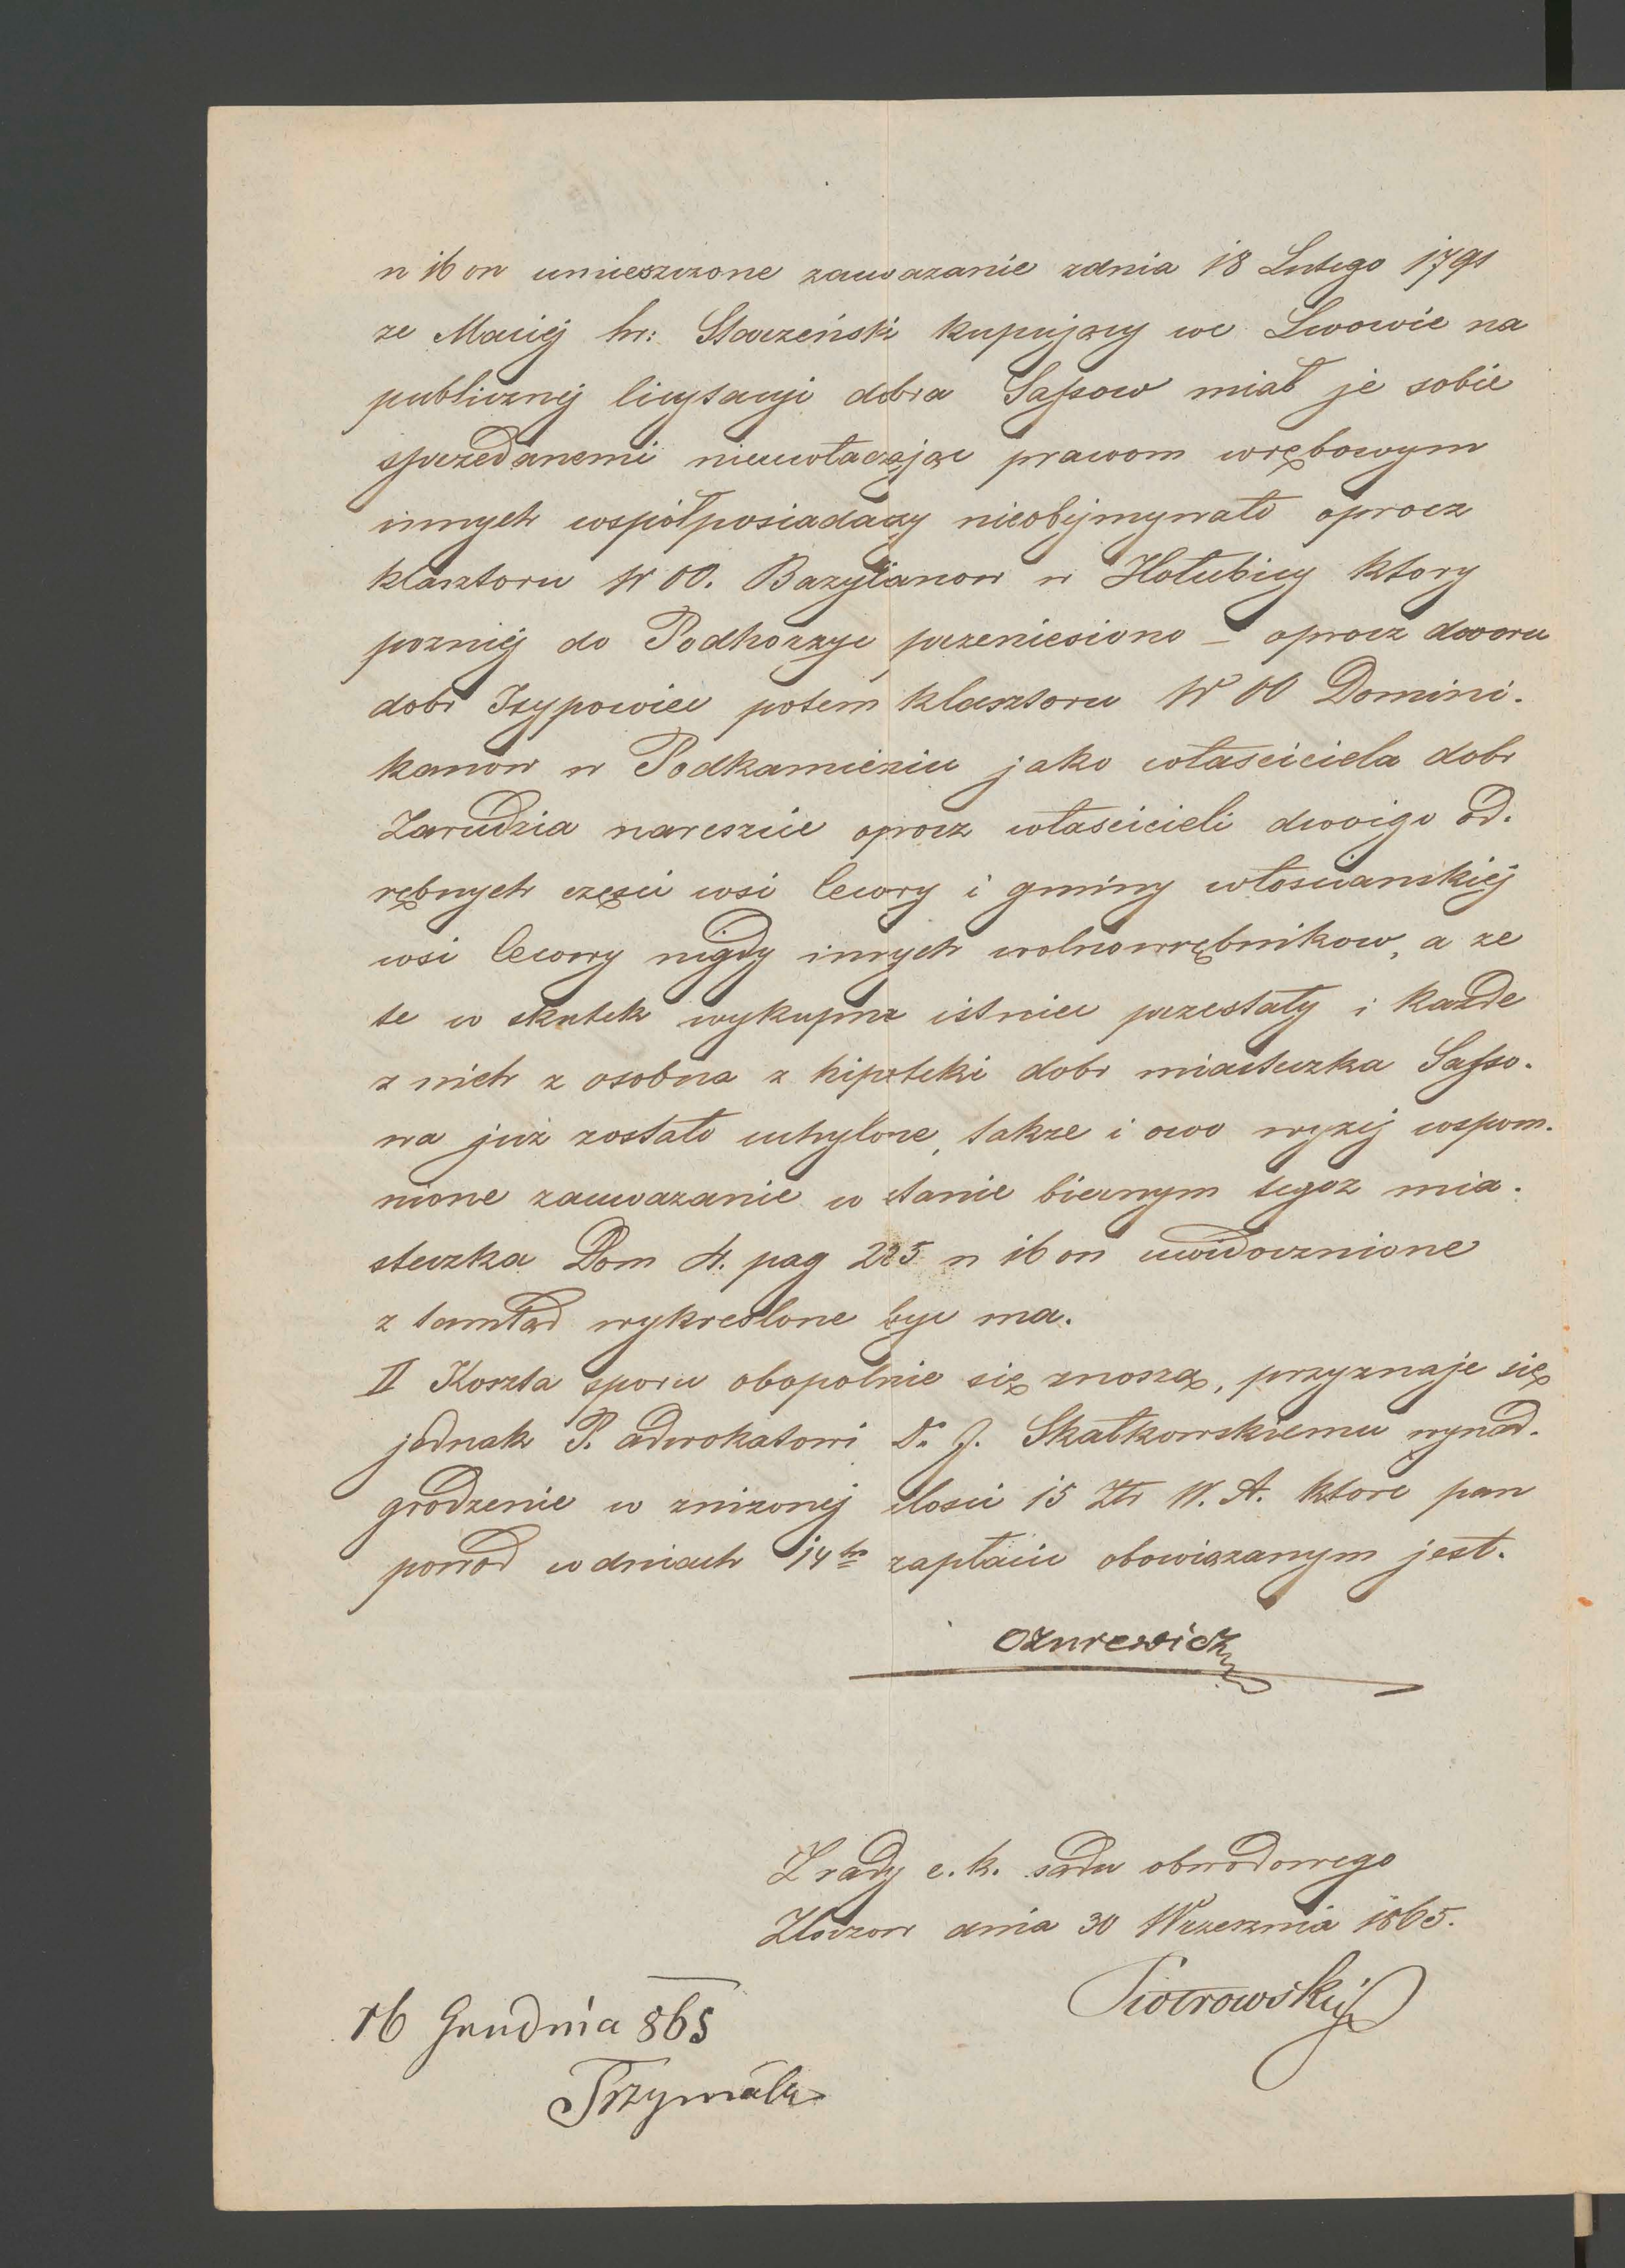 n 16 on umieszczone zauwazanie zdnia 18 Lutego 1791
ze Maciej hr: Starzeński kupujący we Lwowie na
publicznej licytacyi dobra Sassow miał je sobie
sprzedanemi nieuwłaczając prawom wrębowym
innych współposiadaczy nieobejmywało oprocz
klasztoru W OO. Bazylianow w Hołubicy ktory
pozniej do Podhorzyc przeniesiono – oprocz dworu
dobr Isypowiec potem klasztoru W OO Domini.
kanow w Podkamieniu jako własciciela dobr
Zarudzia nareszcie oprocz własicieli dwoiga od.
rębnych częsci wsi Cewory i gminy włosciańskiej
wsi Cewory nigdy innych wolnowrębnikow, a ze
te w skutek wykupna istniec przestały i każde
z nich z osobna z hipoteki dobr miasteczka Sasso.
wa już zostało uchylone, takze i owo wyzej wspom.
nione zauwazanie w stanie biernym tegoz mia.
steczka Dom 4. pag 225 n 16 on uwidocznione
z tamtąd wykreslone byc ma.
II Koszta sporu obopolnie się znoszą, przyznaje się
jednak P. adwokatowi Dr. J. Skałkowskiemu wynad.
grodzenie w znizonej ilosci 15 Złr W. A. ktore pan
powod w dniach 14tu zapłacic obowiązanym jest.
Ożurewicz
Z rady c. k. sądu obwodowego
Złoczow dnia 30 Wrzesznia 1865.
Piotrowski
16 Grudnia 865
Trzymała